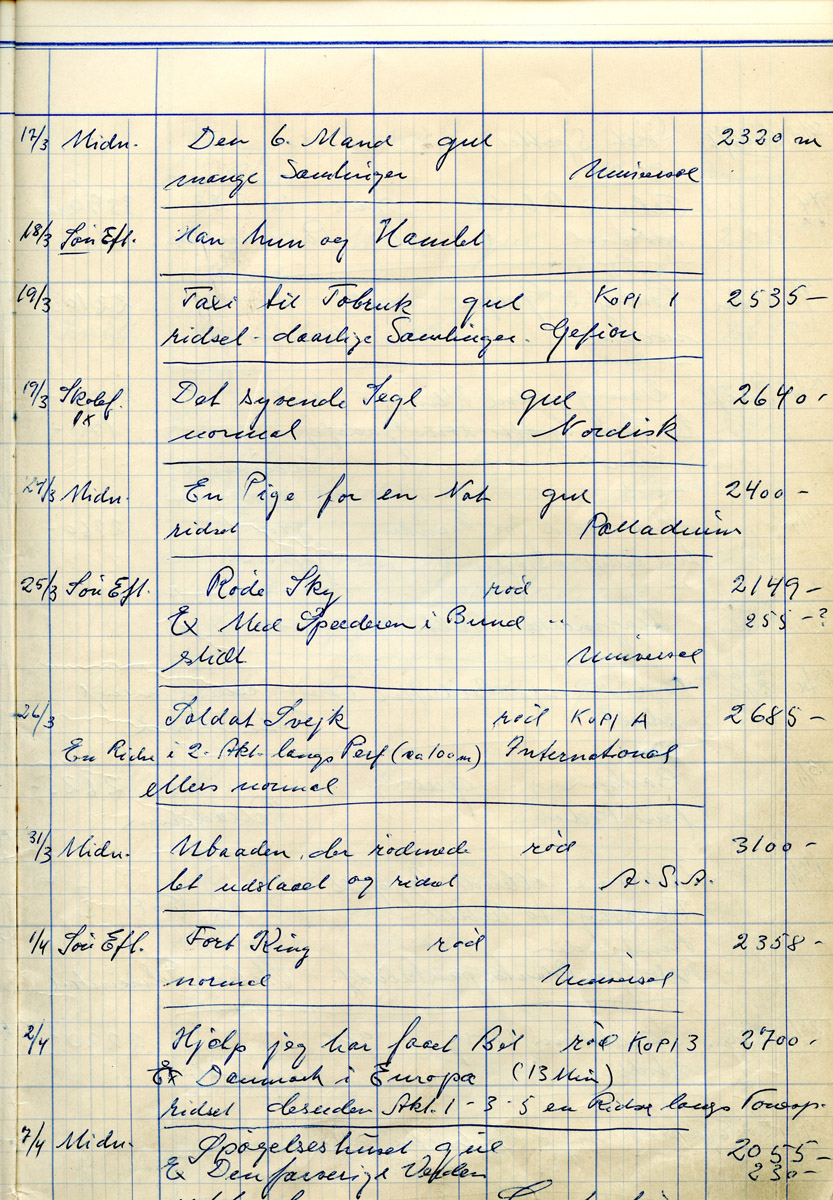 17/3 Midn. Den 6. Mand gul 2320 m
mange Samlinger Universal
18/3 Søn Eft. Han hun og Hamlet
19/3 Taxi til Tobruk gul KOPI 1 2535 –
ridset – daarlige Samlinger. Gefion
19/3 Skolef. Det syvende Segl gul 2640 -
normal Nordisk
Midn. En Pige for en Nat gul 2400 –
ridset Palladium
25/3 Søn Eft. Røde Sky rød 2149 –
Ex Med Speederen i Bund " 255 – ?
slidt Universal
26/3 Soldat Svejk rød KOPI A 2685 –
En Ridse i 2. Akt. langs Perf (ca 100 m) International
ellers normal
31/3 Midn. Ubaaden, der rødmede rød 3100 –
let udslaaet og ridset A.S.A.
1/4 Søn Eft. Fort King rød 2358 –
normal Universal
2/4 Hjælp jeg har faaet Bil rød KOPI 3 2700 -
Ex Danmark i Europa (13 Min)
ridset desuden Akt. 1 - 3 - 5 en Ridse langs Tonesp.
7/4 Midn. Spøgelseshuset gul 2055 –
Ex Den farverige Verden 230 –